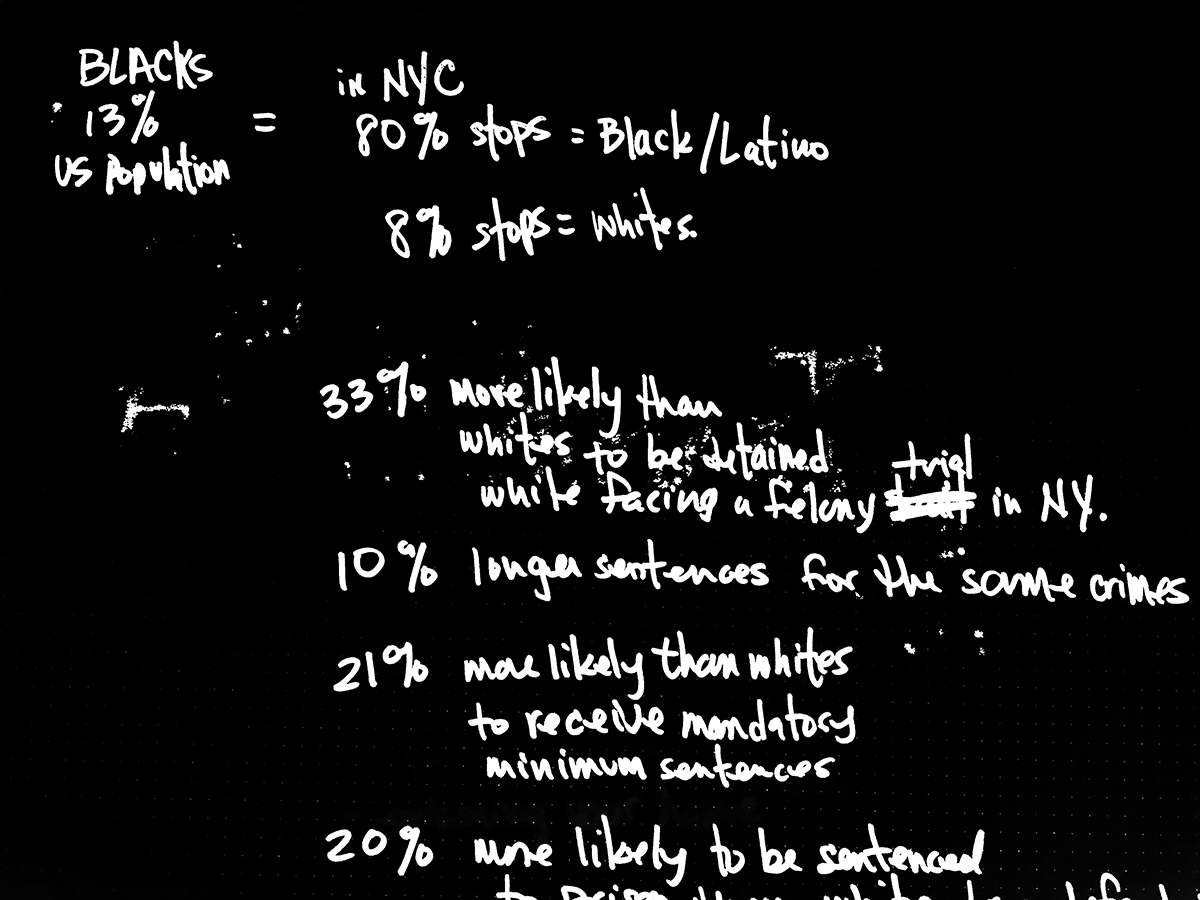 BLACKS
13%
US Population
=
in NYC
80% stops = Black/Latino
8% stops = whites.
33% more likely than
whites to be detained
while facing a felony trial in NY.
10% longer sentences for the same crimes
21% more likely than whites
to receive mandatory
minimum sentences
20% more likely to be sentenced
to prison than white